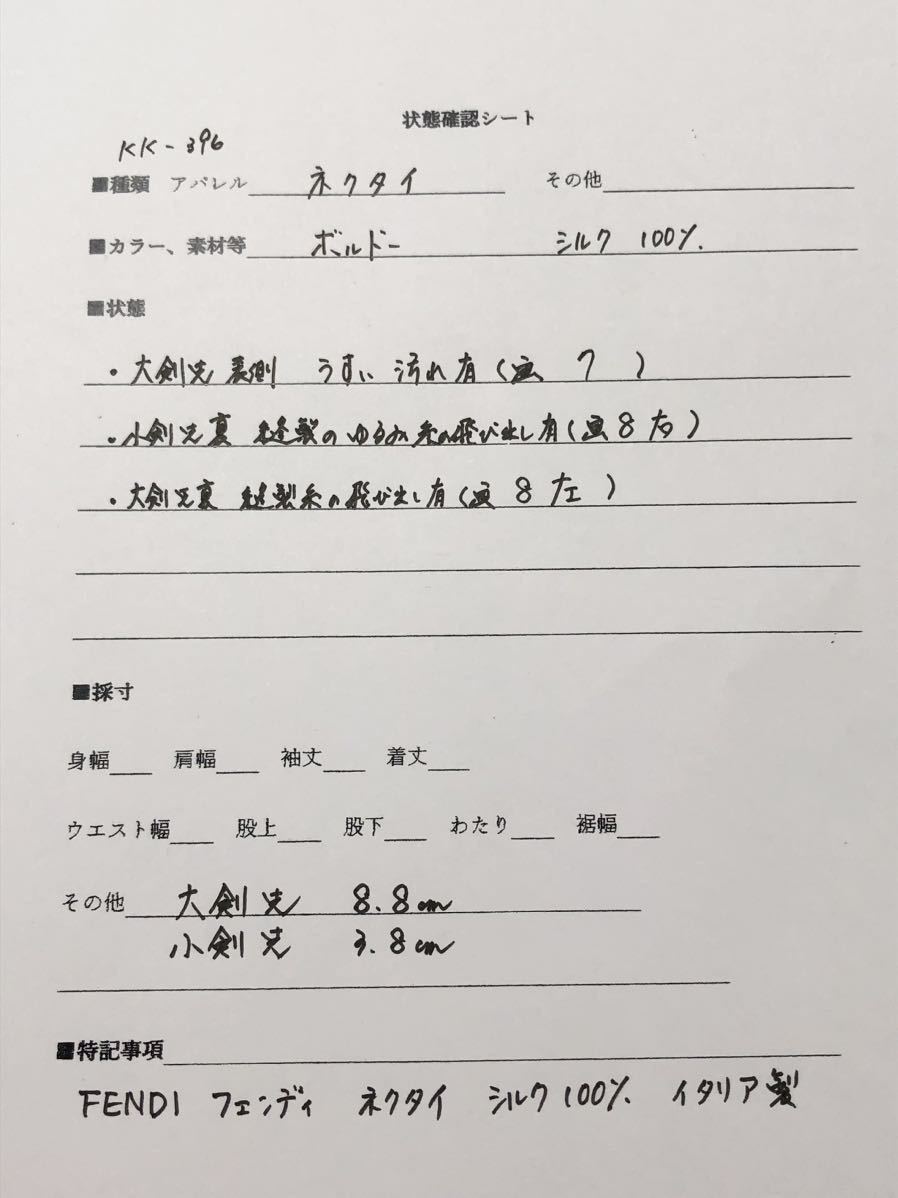 状態確認シート
KK-396
■種類 アパレル ネクタイ その他
■カラー、素材等 ボルドー シルク 100%
■状態
・大剣先裏側 うすい汚れ有(画 7 )
・小剣先裏 縫製のゆるみ糸の飛び出し有(画8右)
・大剣先裏 縫製糸の飛び出し有(画 8左 )
■採寸
身幅 肩幅 袖丈 着丈
ウエスト幅 股上 股下 わたり 裾幅
その他 大剣先 8.8cm
小剣先 3.8cm
■特記事項
FENDI フェンディ ネクタイ シルク100% イタリア製